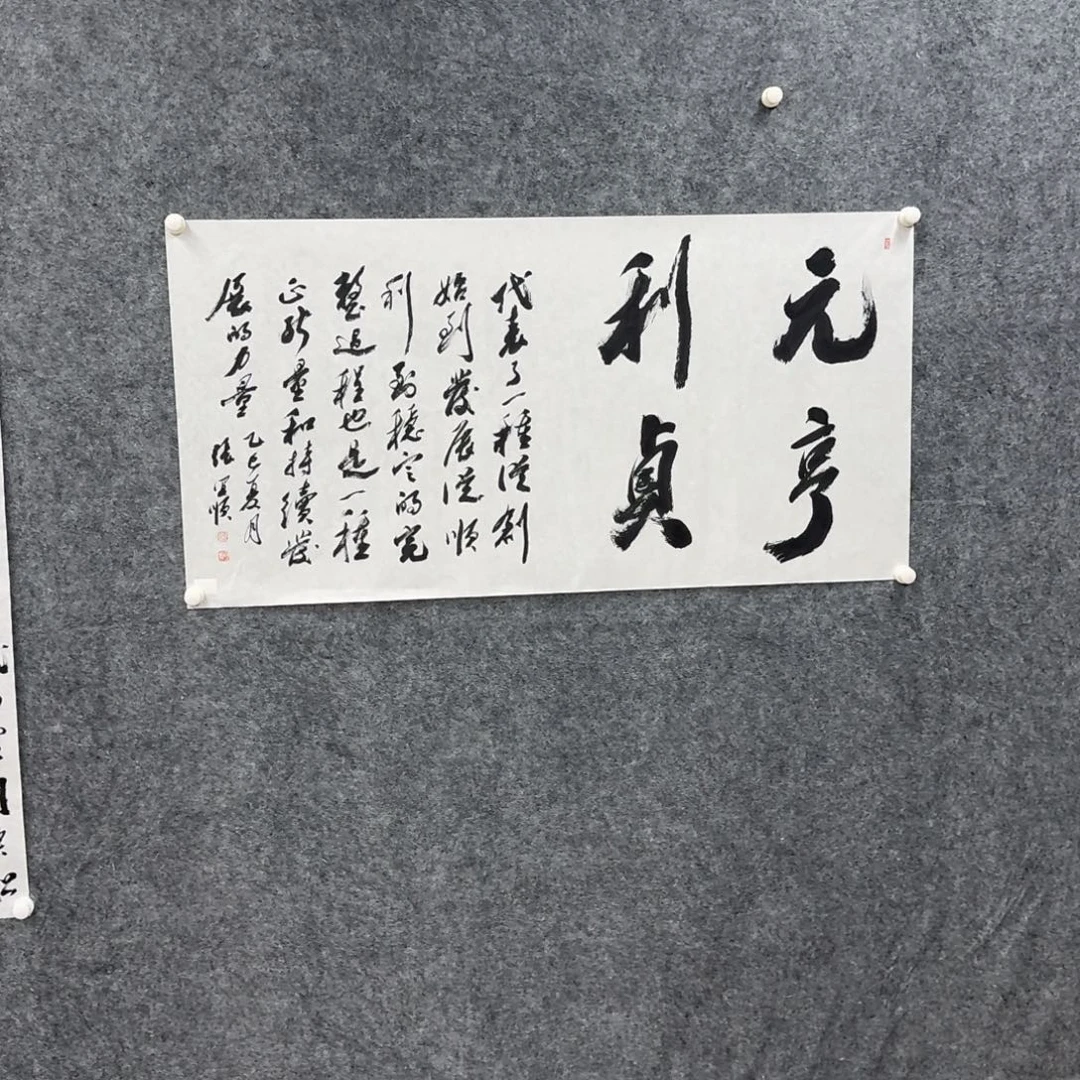 元亨
利貞
代表了一種從創
始到發展從順
利到穩定的完
整過程也是一種
正能量和持續發
展的力量
乙巳夏月
張軍順